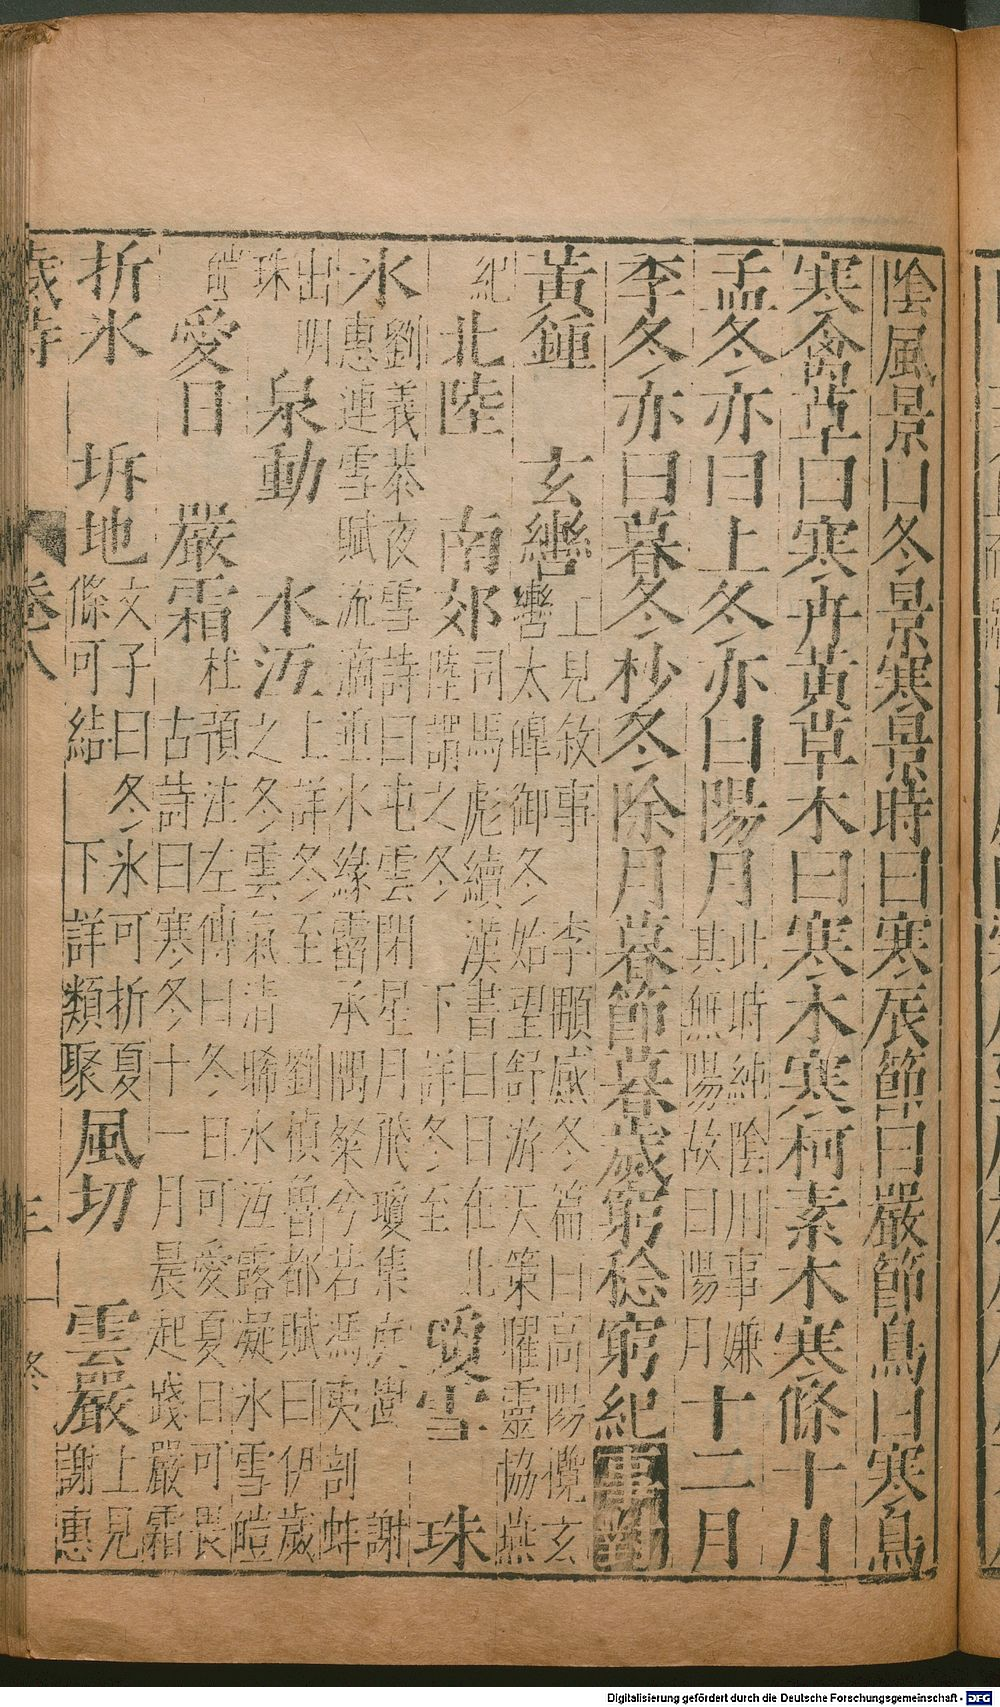 陰風景曰冬景寒景時曰寒辰節曰嚴節鳥曰寒鳥
寒禽草曰寒卉黃草木曰寒木寒柯素木寒條十月
孟冬亦曰上冬亦曰陽月此時純陰用事嫌其無陽故曰陽月十二月
季冬亦曰暮冬杪冬除月暮節暮歲窮稔窮紀事對
黃鍾 玄轡上見敘事 李顒感冬篇曰高陽攬玄轡太皡御冬始望舒游天策曜靈協燕
紀北陸 南郊司馬彪續漢書曰日在北陸謂之冬 下詳冬至 璧雪 珠
氷劉義恭夜雪詩曰屯雲閉星月飛瓊集庭樹 謝惠連雪賦流滴垂氷緣霤承隅粲兮若馮夷剖蚌
出明珠 泉動 水沍上詳冬至 劉楨魯都賦曰伊歲之冬雲氣清晞水沍露凝氷雪皚
皚愛日 嚴霜杜預注左傳曰冬日可愛夏日可畏 古詩曰寒冬十一月晨起踐嚴霜
折氷 坼地文子曰冬氷可折夏條可結 下詳類聚 風切 雲嚴上見謝惠
歲時 卷八 三 冬
Digitalisierung gefördert durch die Deutsche Forschungsgemeinschaft - DFG